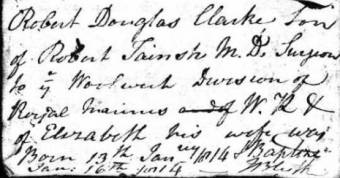 Robert Douglas Clarke Son
of Robert Tainsh M.D. Surgeon
to ye Woolwich Division of
Royal Marines and of W. K &
of Elizabeth his wife was
Born 13th Jany 1814 & Baptize
Jan: 16th 1814